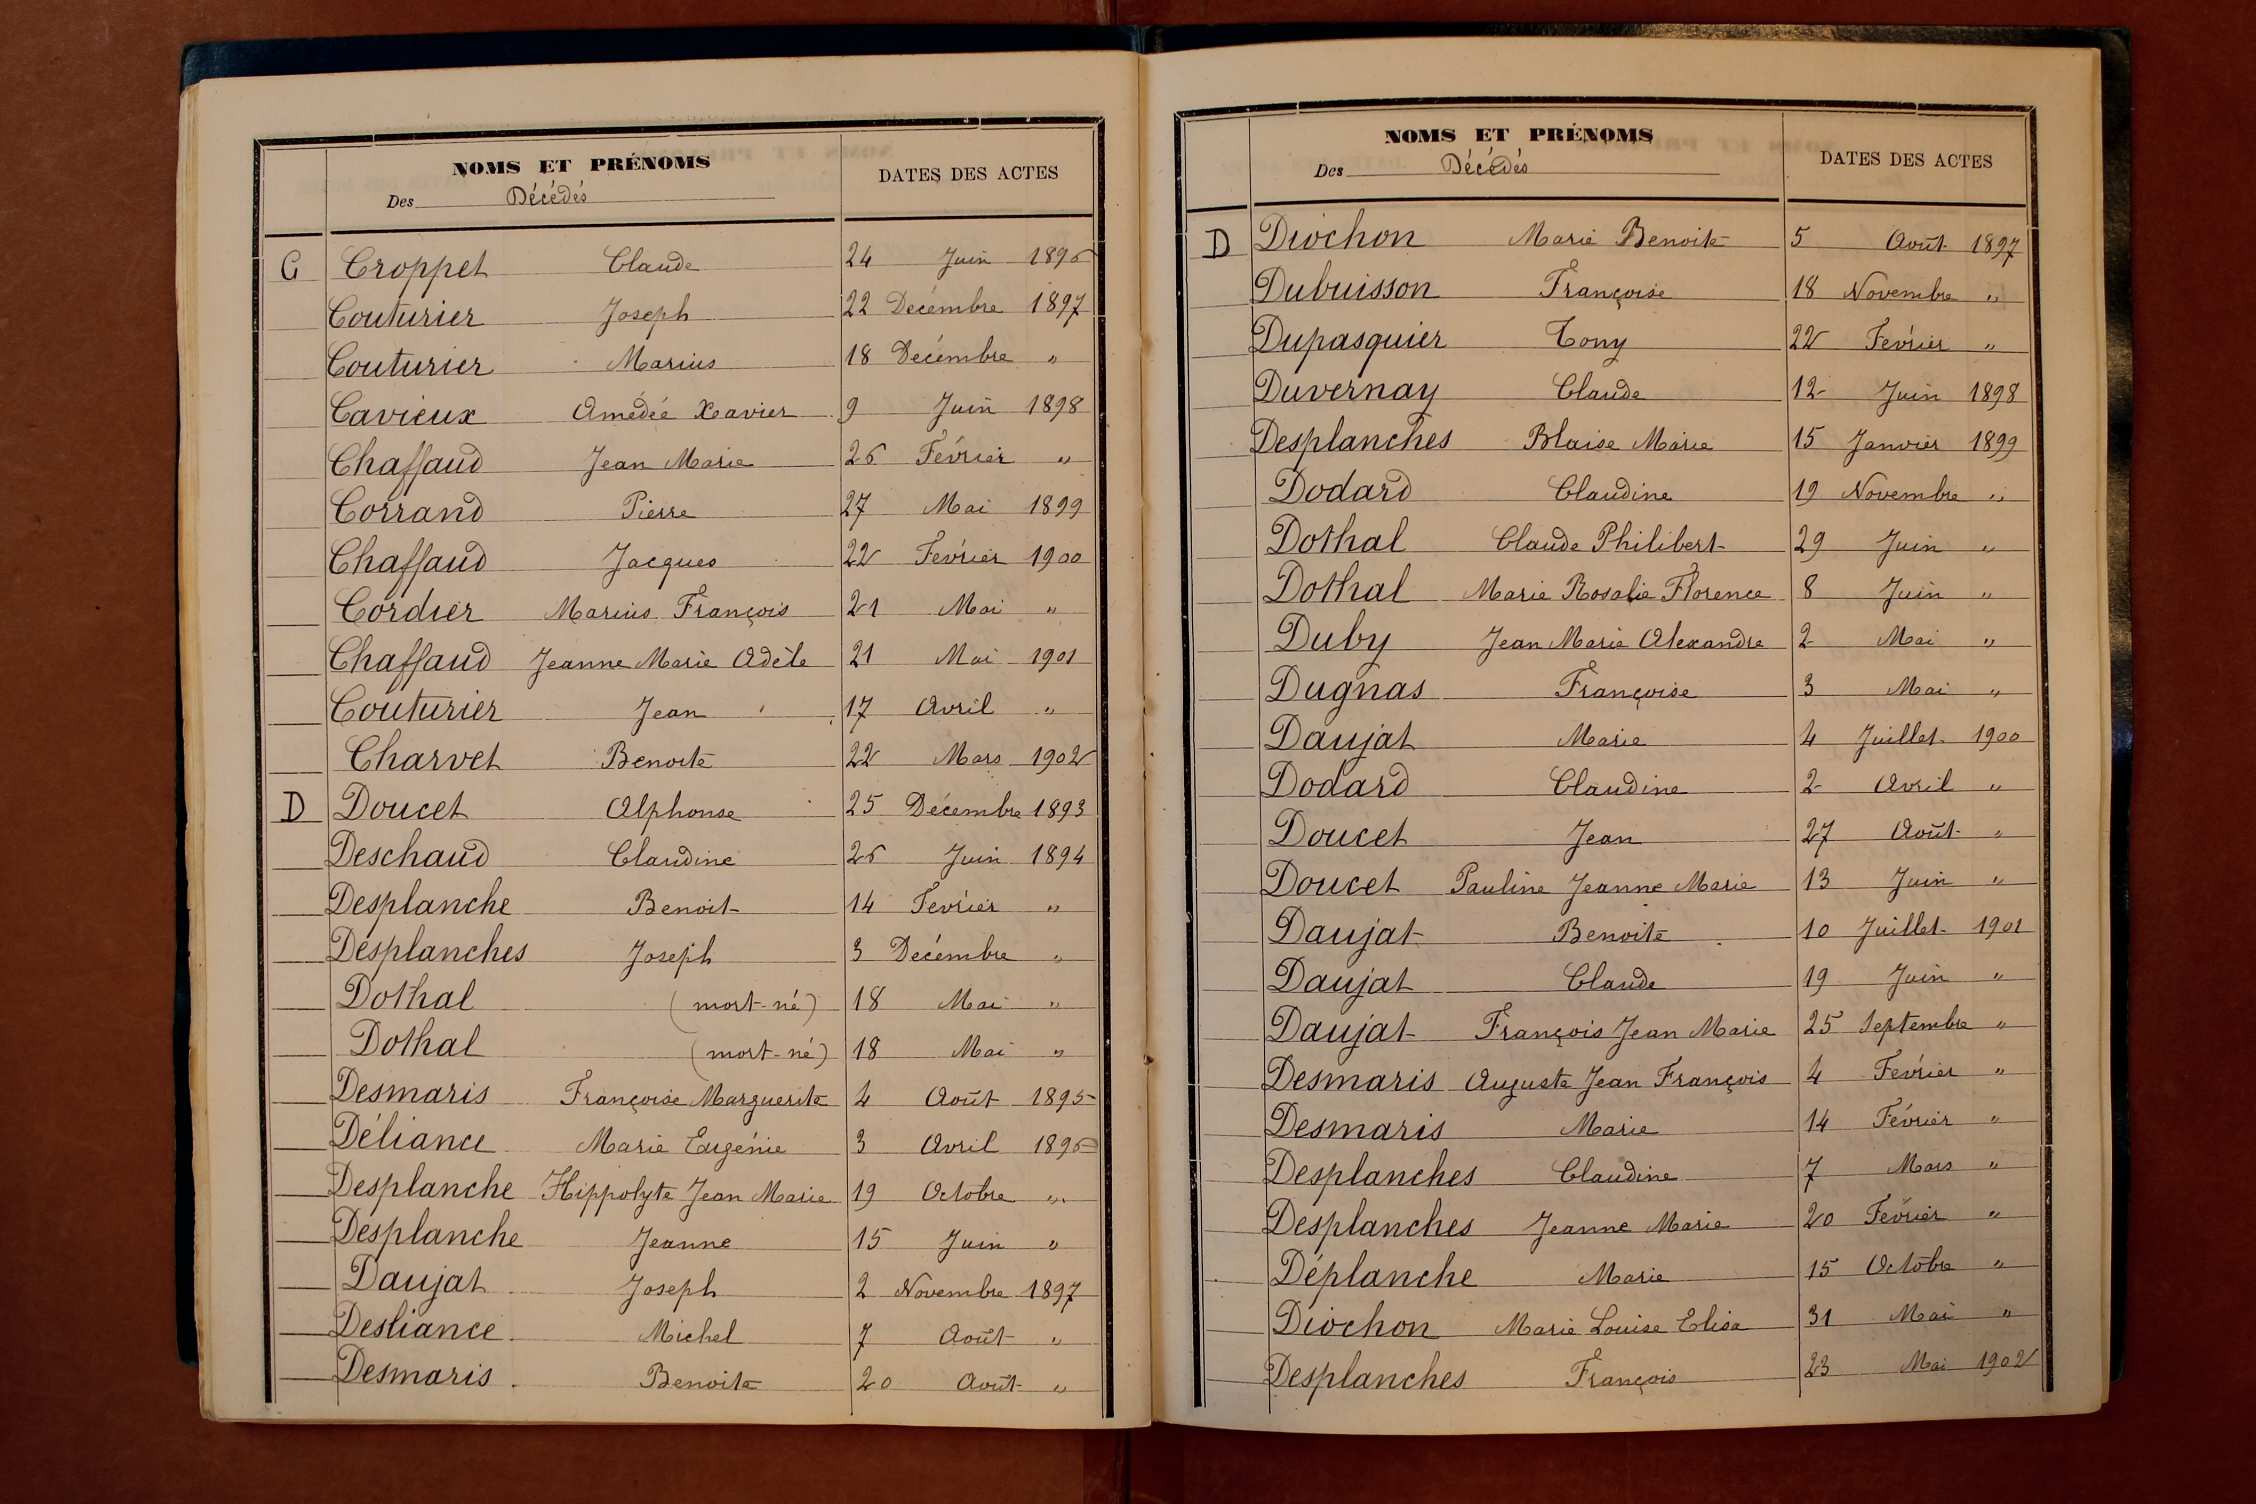 NOMS ET PRÉNOMS
DATES DES ACTES
Des Décédés
C Croppet Claude 24 Juin 1896
Couturier Joseph 22 Decémbre 1897
Couturier Marius 18 Decémbre "
Cavieux Amedée Xavier 9 Juin 1898
Chaffaud Jean Marie 26 Février "
Corrand Pierre 27 Mai 1899
Chaffaud Jacques 22 Février 1900
Cordier Marius François 21 Mai "
Chaffaud Jeanne Marie Adèle 21 Mai 1901
Couturier Jean 17 Avril "
Charvet Benoite 22 Mars 1902
D Doucet Alphonse 25 Décembre 1893
Deschaud Claudine 26 Juin 1894
Desplanche Benoit 14 Février "
Desplanches Joseph 3 Decémbre "
Dothal (mort-né) 18 Mai "
Dothal (mort-né) 18 Mai "
Desmaris Françoise Marguerite 4 Août 1895
Déliance Marie Eugénie 3 Avril 1896
Desplanche Hippolyte Jean Marie 19 Octobre "
Desplanche Jeanne 15 Juin "
Daujat Joseph 2 Novembre 1897
Desliance Michel 7 Août "
Desmaris Benoite 20 Août "
NOMS ET PRÉNOMS
DATES DES ACTES
Des Décédés
D Diochon Marie Benoite 5 Août 1897
Dubuisson Françoise 18 Novembre "
Dupasquier Tony 22 Février "
Duvernay Claude 12 Juin 1898
Desplanches Blaise Marie 15 Janvier 1899
Dodard Claudine 19 Novembre "
Dothal Claude Philibert 29 Juin "
Dothal Marie Rosalie Florence 8 Juin "
Duby Jean Marie Alexandre 2 Mai "
Dugnas Françoise 3 Mai "
Daujat Marie 4 Juillet 1900
Dodard Claudine 2 Avril "
Doucet Jean 27 Août "
Doucet Pauline Jeanne Marie 13 Juin "
Daujat Benoite 10 Juillet 1901
Daujat Claude 19 Juin "
Daujat François Jean Marie 25 Septembre "
Desmaris Auguste Jean François 4 Février "
Desmaris Marie 14 Février "
Desplanches Claudine 7 Mars "
Desplanches Jeanne Marie 20 Février "
Déplanche Marie 15 Octobre "
Diochon Marie Louise Elisa 31 Mai "
Desplanches François 23 Mai 1902